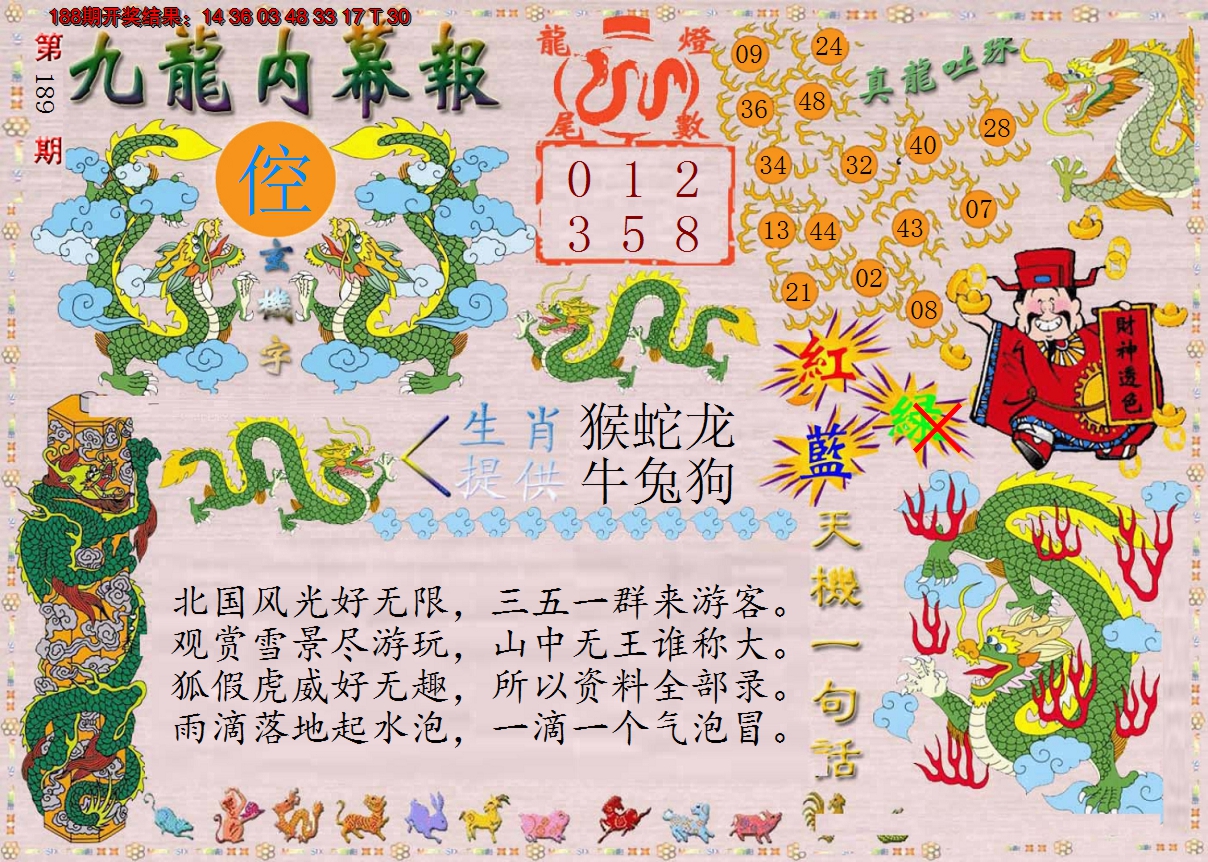 188期开奖结果：14 36 03 48 33 17 T 30
第189期
九龍内幕報
倥
玄機字
龍燈尾數
0 1 2
3 5 8
真龍吐珠
09 24
36 48
40 28
34 32
13 44 43 07
21 02 08
紅
綠
藍
財神透色
生肖提供
猴蛇龙
牛兔狗
天機一句话
北国风光好无限，三五一群来游客。
观赏雪景尽游玩，山中无王谁称大。
狐假虎威好无趣，所以资料全部录。
雨滴落地起水泡，一滴一个气泡冒。